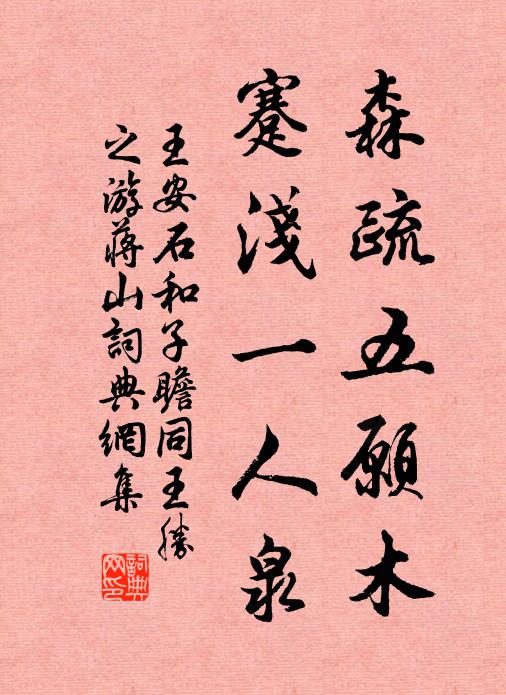 森疏五願木
蹇淺一人泉
王安石和子瞻同王勝
之游蔣山詞典網集
詞典網印